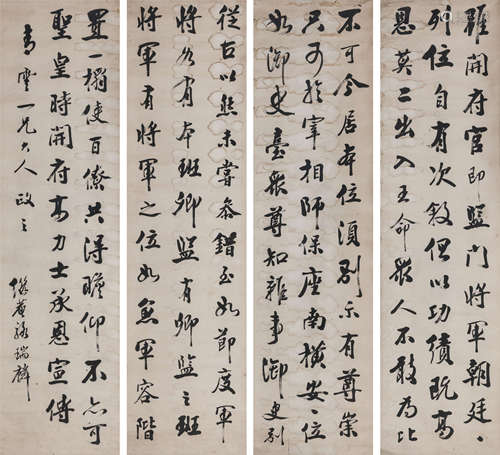 雖開府官即監門將軍朝廷〻
列位自有次叙但以功績既高
恩莫二出入王命眾人不敢為比
不可令居本位須別示有尊崇
只可於宰相師保座南橫安一位
如御史臺眾尊知雜事御史別
從古以然未嘗參錯至如節度軍
將各有本班卿監有卿監之班
將軍有將軍之位如魚軍容階
置一榻使百僚共得瞻仰不亦可
聖皇時開府高力士承恩宣傳
青雲一兄大人政之
瑞麟